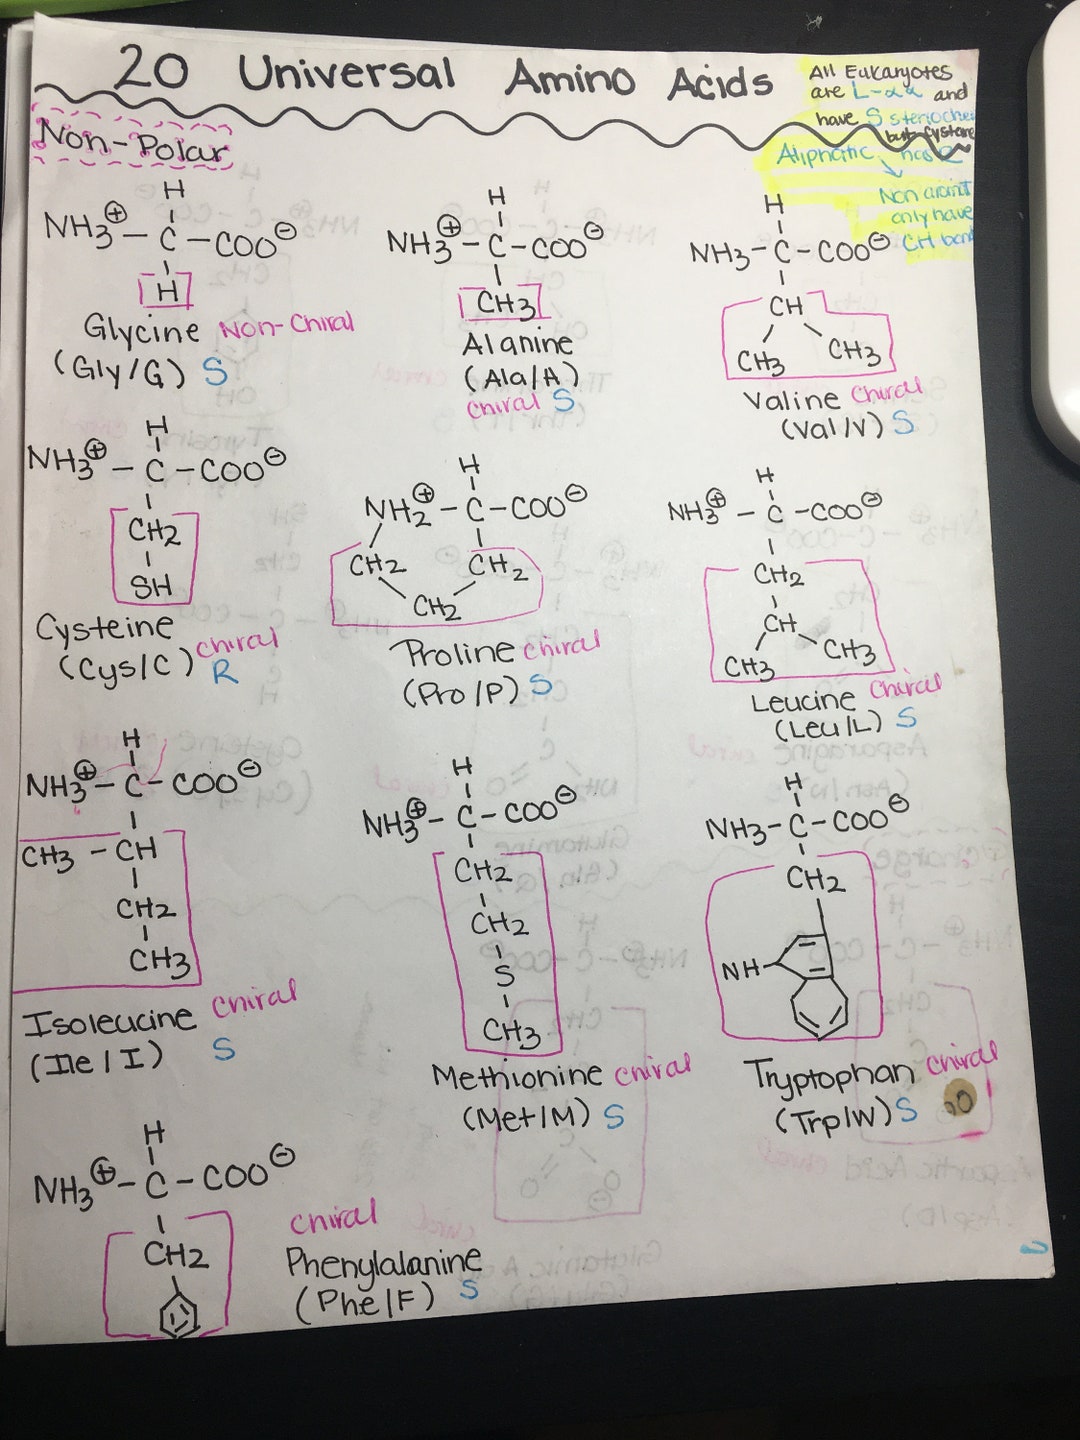 20 Universal Amino Acids
All Eukaryotes
are L-αα and
have S
but cysteine
has R
Aliphatic
Non aromat
only have
CH bond
Non-Polar
H
NH3⊕ – C – COO⊖
H
Glycine Non-Chiral
(Gly/G) S
H
NH3⊕ – C – COO⊖
CH3
Alanine
(Ala/A)
chiral S
H
NH3 – C – COO⊖
CH
CH3 CH3
Valine chiral
(Val/V) S
H
NH3⊕ – C – COO⊖
CH2
SH
Cysteine chiral
(Cys/C) R
H
NH2⊕ – C – COO⊖
CH2 CH2
CH2
Proline chiral
(Pro/P) S
H
NH3⊕ – C – COO⊖
CH2
CH
CH3 CH3
Leucine chiral
(Leu/L) S
H
NH3⊕ – C – COO⊖
CH3 – CH
CH2
CH3
Isoleucine chiral
(Ile/I) S
H
NH3⊕ – C – COO⊖
CH2
CH2
S
CH3
Methionine chiral
(Met/M) S
H
NH3 – C – COO⊖
CH2
NH
Tryptophan chiral
(Trp/W) S
H
NH3⊕ – C – COO⊖
CH2
chiral
Phenylalanine
(Phe/F) S